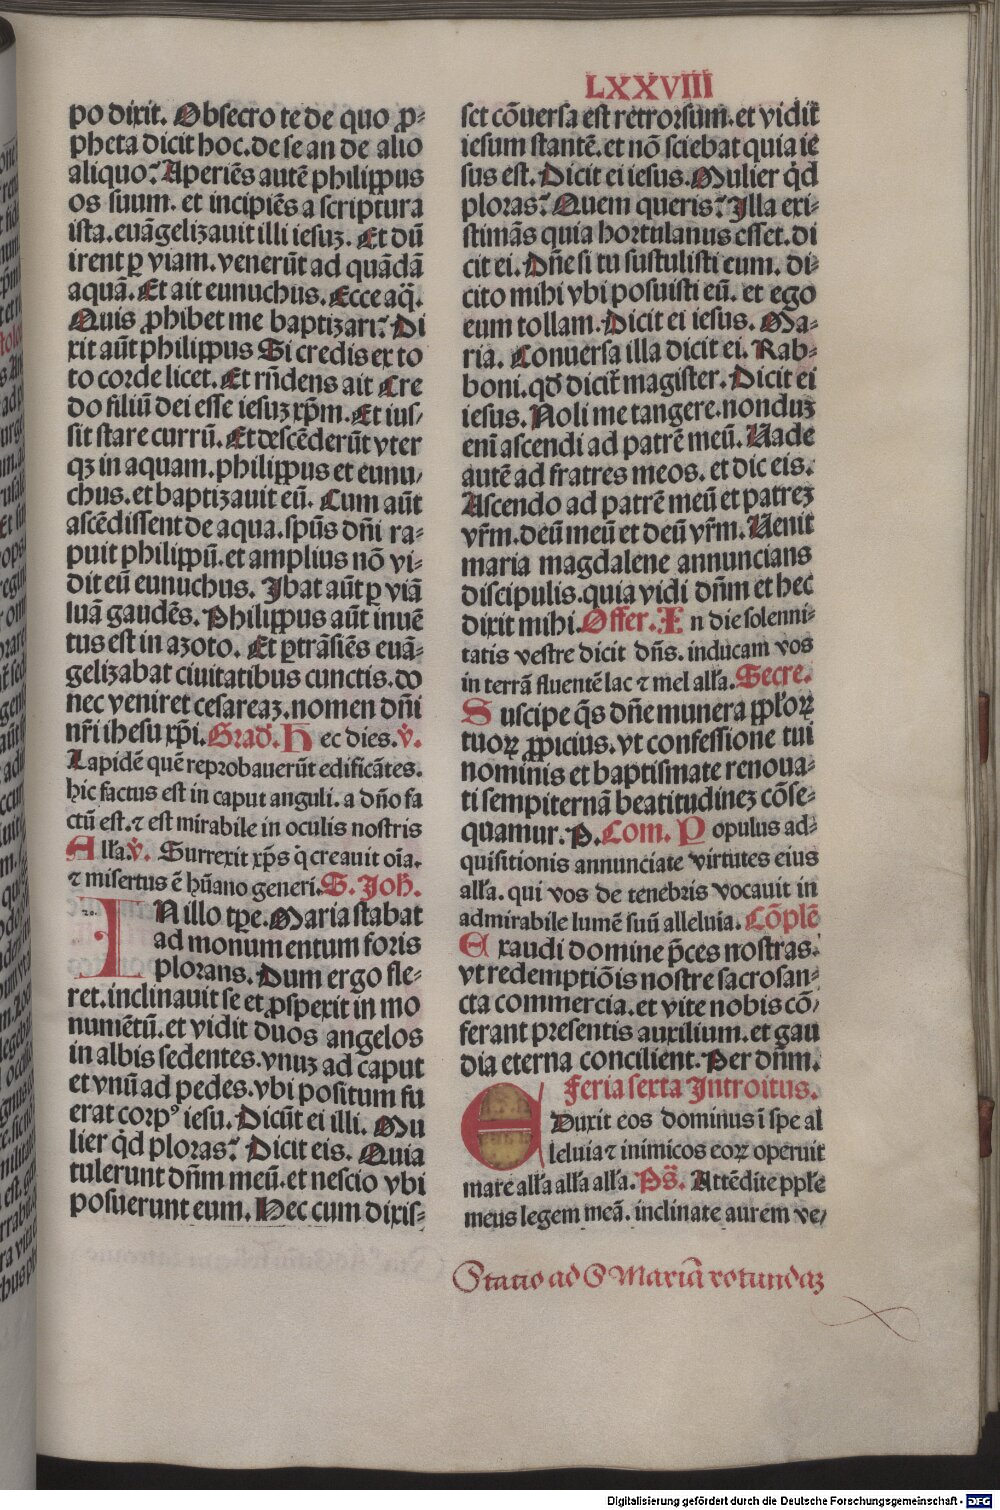 LXXVIII
po dixit. Obsecro te de quo ꝓ⸗
pheta dicit hoc. de se an de alio
aliquo? Aperiẽs autẽ philippus
os suum. et incipiẽs a scriptura
ista. euãgelizauit illi iesuz. Et dũ
irent ꝑ viam. venerũt ad quãdã
aquã. Et ait eunuchus. Ecce aq̃.
Quis ꝓhibet me baptizari? Di
xit aũt philippus Si credis ex to
to corde licet. Et rñdens ait Cre
do filiũ dei esse iesuz xp̃m. Et ius⸗
sit stare currũ. Et descẽderũt vter
qꝫ in aquam. philippus et eunu⸗
chus. et baptizauit eũ. Cum aũt
ascẽdissent de aqua. spũs dñi ra⸗
puit philippũ. et amplius nõ vi⸗
dit eũ eunuchus. Ibat aũt ꝑ viã
suã gaudẽs. Philippus aũt inuẽ
tus est in azoto. Et ꝑtrãsiẽs euã⸗
gelizabat ciuitatibus cunctis. do
nec veniret cesareaz. nomen dñi
nr̃i ihesu xp̃i. Grad̃. Hec dies. ℣.
Lapidẽ quẽ reprobauerũt edificãtes.
hic factus est in caput anguli. a dño fa
ctũ est. ⁊ est mirabile in oculis nostris
All'a. ℣. Surrexit xp̃s q̃ creauit oĩa.
⁊ misertus ẽ hũano generi. S. Joh̃.
IN illo tp̃e. Maria stabat
ad monumentum foris
plorans. Dum ergo fle⸗
ret. inclinauit se et ꝓspexit in mo
numẽtũ. et vidit duos angelos
in albis sedentes. vnuz ad caput
et vnũ ad pedes. vbi positum fu
erat corpꝰ iesu. Dicũt ei illi. Mu
lier q̃d ploras? Dicit eis. Quia
tulerunt dñm meũ. et nescio vbi
posuerunt eum. Hec cum dixis⸗
set cõuersa est retrorsum. et vidit
iesum stantẽ. et nõ sciebat quia ie
sus est. Dicit ei iesus. Mulier q̃d
ploras? Quem queris? Illa exi⸗
stimãs quia hortulanus esset. di
cit ei. Dñe si tu sustulisti eum. di⸗
cito mihi vbi posuisti eũ. et ego
eum tollam. Dicit ei iesus. Ma⸗
ria. Conuersa illa dicit ei. Rab⸗
boni. qd̃ dicit̃ magister. Dicit ei
iesus. Noli me tangere. nonduz
enĩ ascendi ad patrẽ meũ. Uade
autẽ ad fratres meos. et dic eis.
Ascendo ad patrẽ meũ et patrez
vr̃m. deũ meũ et deũ vr̃m. Uenit
maria magdalene annuncians
discipulis. quia vidi dñm et hec
dixit mihi. Offer. In die solenni⸗
tatis vestre dicit dñs. inducam vos
in terrã fluentẽ lac ⁊ mel all'a. Secre.
Suscipe q̃s dñe munera pp̃loꝝ
tuoꝝ ꝓpicius. vt confessione tui
nominis et baptismate renoua⸗
ti sempiternã beatitudinez cõse⸗
quamur. P. Com. Populus ad⸗
quisitionis annunciate virtutes eius
all'a. qui vos de tenebris vocauit in
admirabile lumẽ suũ alleluia. Cõplẽ
Exaudi domine p̃ces nostras.
vt redemptiõis nostre sacrosan⸗
cta commercia. et vite nobis cõ⸗
ferant presentis auxilium. et gau
dia eterna concilient. Per dñm.
Feria sexta Introitus.
EDuxit eos dominus ĩ spe al
leluia ⁊ inimicos eoꝝ operuit
mare all'a all'a all'a. Ps̃. Attẽdite pp̃le
meus legem meã. inclinate aurem ve⸗
Statio ad S Mariã rotundaz
Digitalisierung gefördert durch die Deutsche Forschungsgemeinschaft - DFG